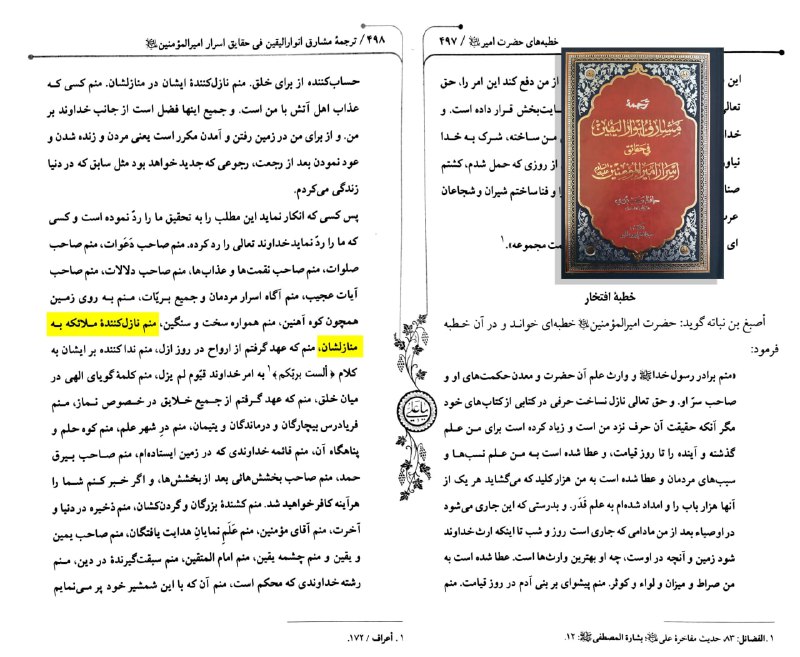 خطبه‌های حضرت امیر / ۴۹۷
این
از من دفع کند این امر را، حق
تعالی
سایت‌بخش قرار داده است. و
خدا
من ساخته، شرک به خدا
نیاور
از روزی که حمل شدم، کشتم
صنا
و فنا ساختم شیران و شجاعان
عرب
ای
ت مجموعه».۱
ترجمهٔ
مشارق انوار الیقین
فی حقائق
اسرار امیرالمؤمنین علیه‌السلام
خطبهٔ افتخار
اصبغ بن نباته گوید: حضرت امیرالمؤمنین خطبه‌ای خواند و در آن خطبه
فرمود:
«منم برادر رسول خدا و وارث علم آن حضرت و معدن حکمت‌های او و
صاحب سرّ او. و حق تعالی نازل نساخت حرفی در کتابی از کتاب‌های خود
مگر آنکه حقیقت آن حرف نزد من است و زیاد کرده است برای من علم
گذشته و آینده را تا روز قیامت، و عطا شده است به من علم نسب‌ها و
سبب‌های مردمان و عطا شده است به من هزار کلید که می‌گشاید هر یک از
آنها هزار باب را و امداد شده‌ام به علم قَدَر. و بدرستی که این جاری می‌شود
در اوصیاء بعد از من مادامی که جاری است روز و شب تا اینکه ارث خداوند
شود زمین و آنچه در اوست، چه او بهترین وارث‌ها است. عطا شده است به
من صراط و میزان و لواء و کوثر. منم پیشوای بر بنی آدم در روز قیامت. منم
۱. الفضائل: ۸۳، حدیث مفاخرة علی؛ بشارة المصطفی: ۱۲.
۴۹۸ / ترجمهٔ مشارق انوارالیقین فی حقایق اسرار امیرالمؤمنین
حساب‌کننده از برای خلق. منم نازل‌کنندهٔ ایشان در منازلشان. منم کسی که
عذاب اهل آتش با من است. و جمیع اینها فضل است از جانب خداوند بر
من. و از برای من در زمین رفتن و آمدن مکرر است یعنی مردن و زنده شدن و
عود نمودن بعد از رجعت، رجوعی که جدید خواهد بود مثل سابق که در دنیا
زندگی می‌کردم.
پس کسی که انکار نماید این مطلب را به تحقیق ما را ردّ نموده است و کسی
که ما را ردّ نماید خداوند تعالی را رد کرده. منم صاحب دَعَوات، منم صاحب
صلوات، منم صاحب نقمت‌ها و عذاب‌ها، منم صاحب دلالات، منم صاحب
آیات عجیب، منم آگاه اسرار مردمان و جمیع بریّات، منم به روی زمین
همچون کوه آهنین، منم همواره سخت و سنگین، منم نازل‌کنندهٔ ملائکه به
منازلشان، منم که عهد گرفتم از ارواح در روز ازل، منم ندا کننده بر ایشان به
کلام ﴿ألست بربّکم﴾۱ به امر خداوند قیّوم لم یزل، منم کلمهٔ گویای الهی در
میان خلق، منم که عهد گرفتم از جمیع خلایق در خصوص نماز، منم
فریادرس بیچارگان و درماندگان و یتیمان، منم درِ شهر علم، منم کوه حلم و
پناهگاه آن، منم قائمه خداوندی که در زمین ایستاده‌ام، منم صاحب بیرق
حمد، منم صاحب بخشش‌هائی بعد از بخشش‌ها، و اگر خبر کنم شما را
هرآینه کافر خواهید شد. منم کشندهٔ بزرگان و گردن‌کشان، منم ذخیره در دنیا و
آخرت، منم آقای مؤمنین، منم عَلَم نمایانِ هدایت یافتگان، منم صاحب یمین
و یقین و منم چشمه یقین، منم امام المتقین، منم سبقت‌گیرندهٔ در دین، منم
رشته خداوندی که محکم است، منم آن که با این شمشیر خود پر می‌نمایم
۱. أعراف / ۱۷۲.